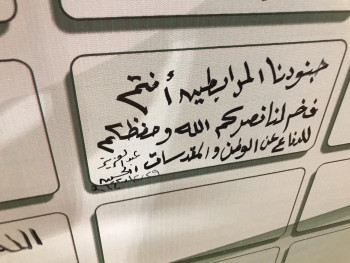 جنودنا المرابطين أنتم
فخر لنا نصركم الله وحفظكم
للدفاع عن الوطن والمقدسات
عبدالعزيز